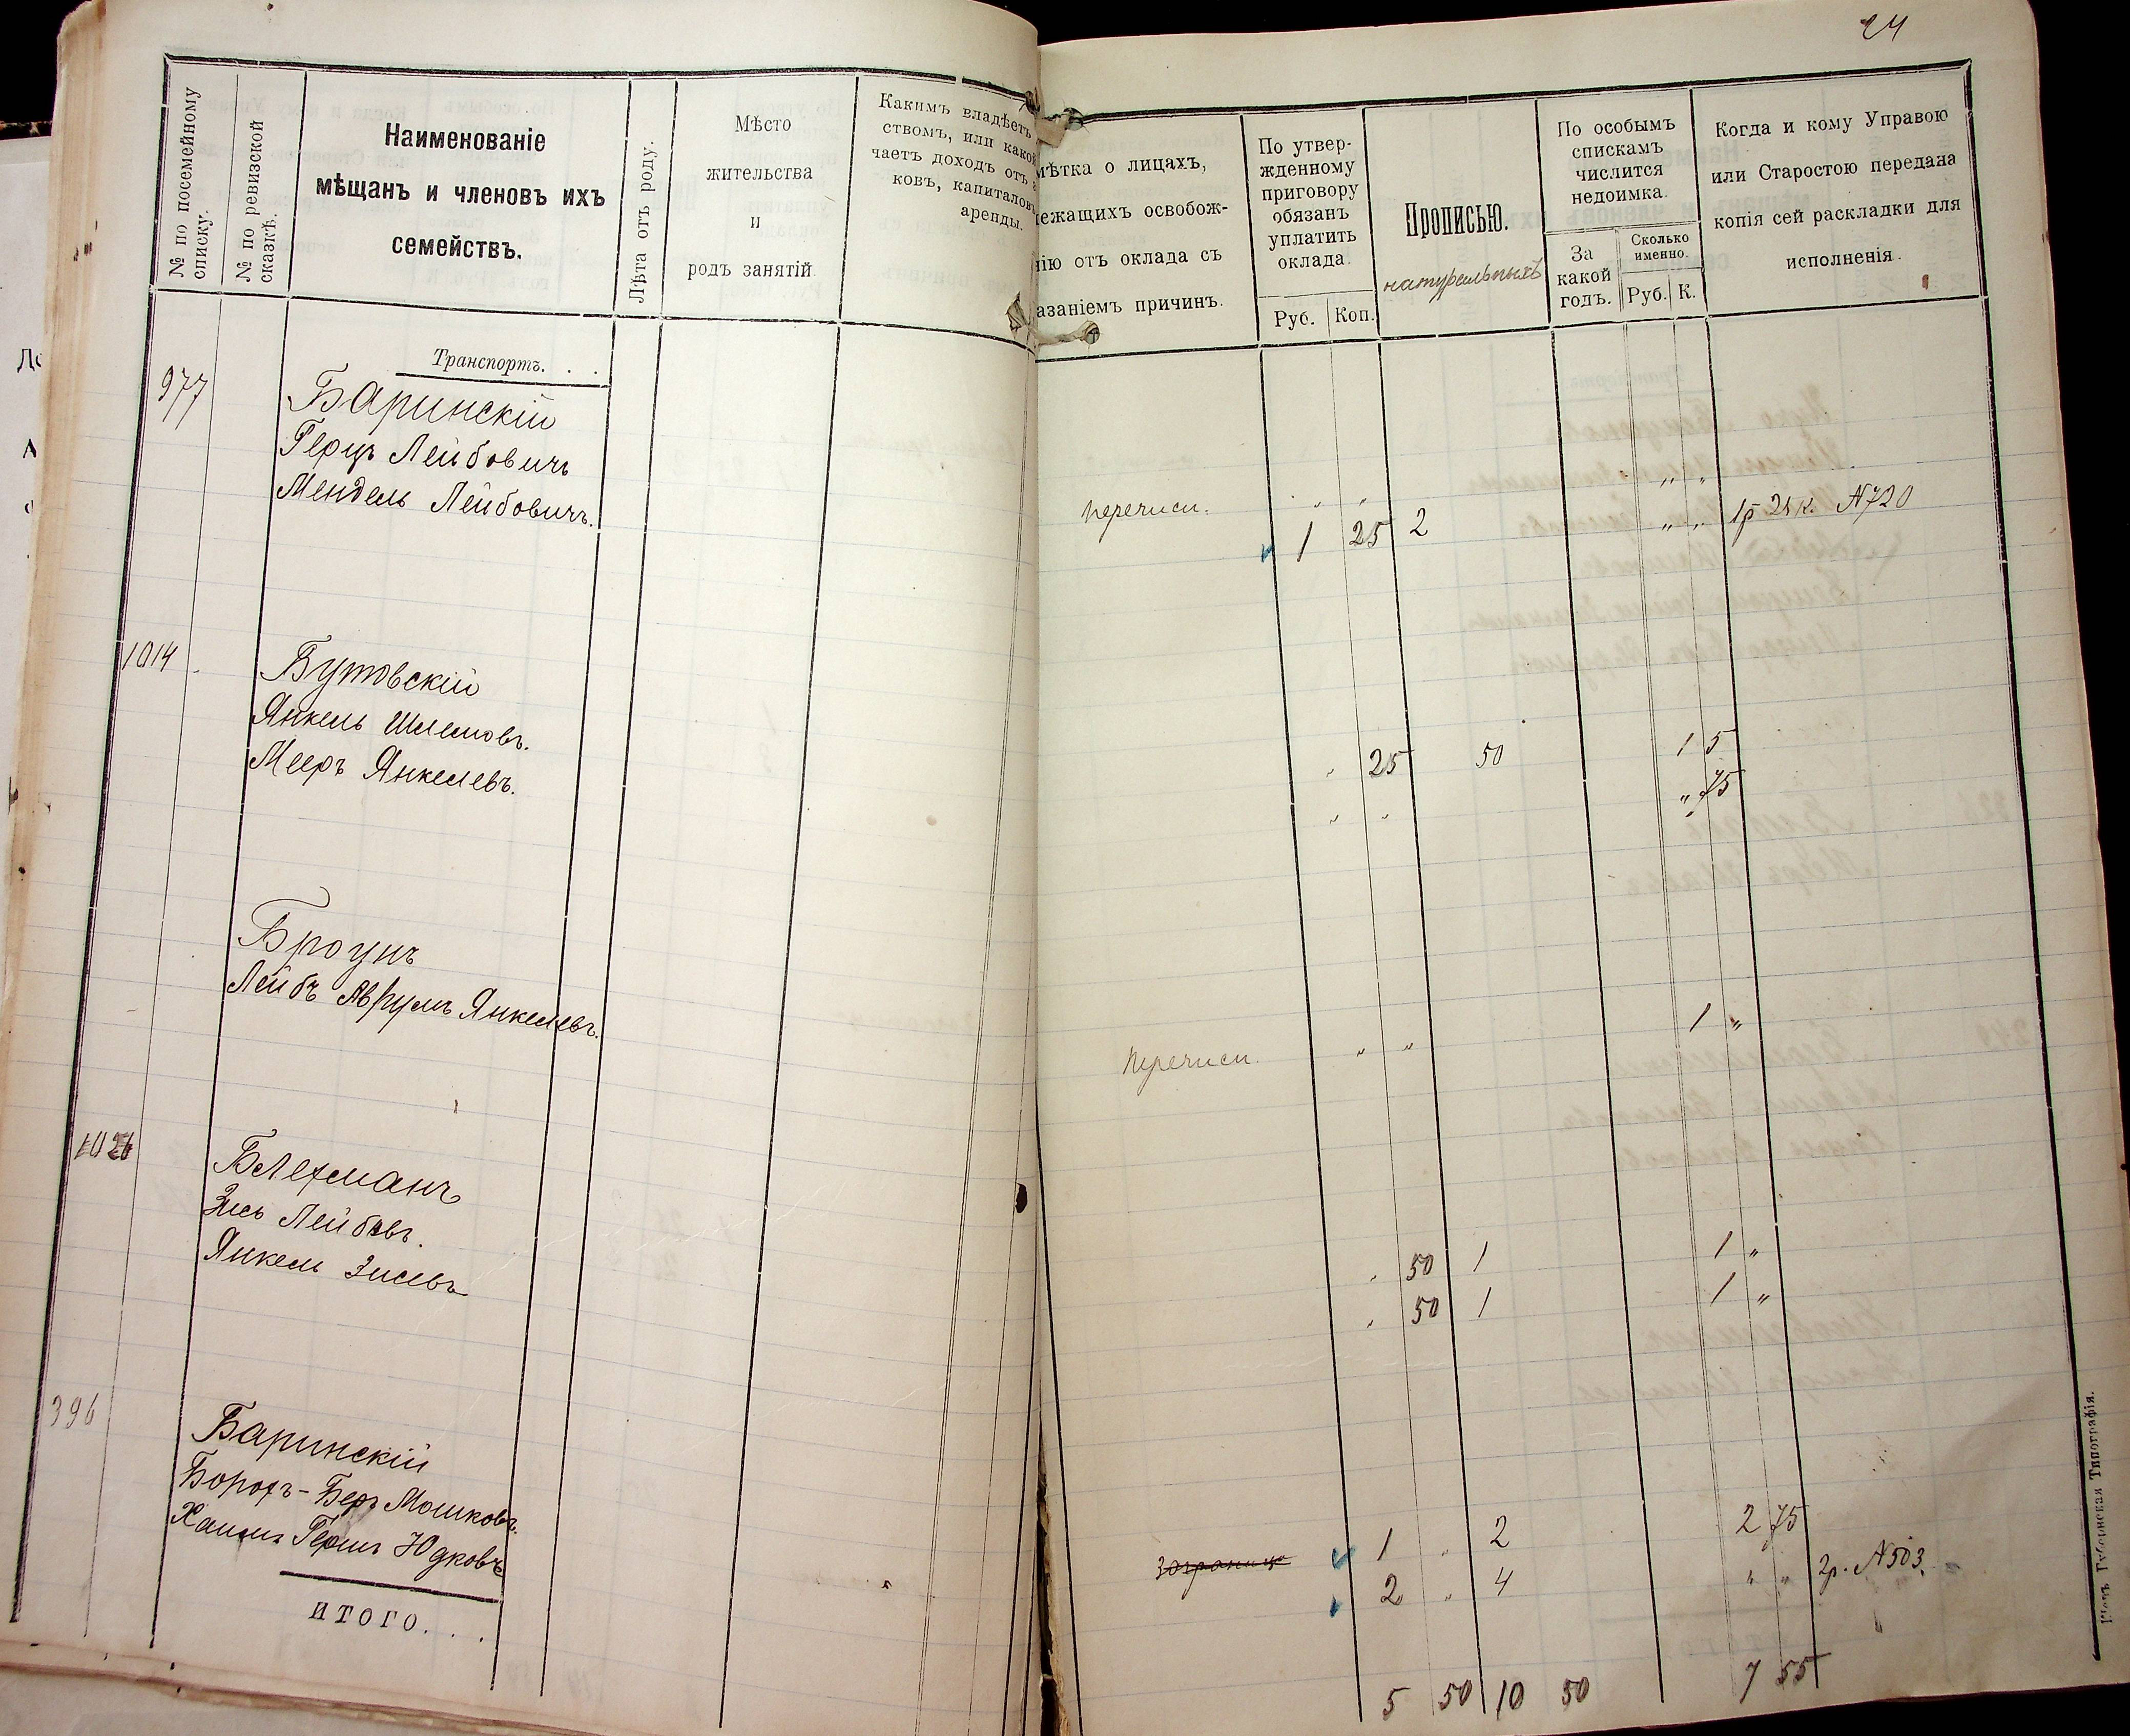 24
№ по посемейному
списку.
№ по ревизской
сказкѣ.
Наименованіе
мѣщанъ и членовъ ихъ
семействъ.
Лѣта отъ роду.
Мѣсто
жительства
и
родъ занятій
Какимъ владѣетъ
ствомъ, или какой
чаетъ доходъ отъ
ковъ, капиталовъ
аренды.
мѣтка о лицахъ,
лежащихъ освобож-
нію отъ оклада съ
азаніемъ причинъ.
По утвер-
жденному
приговору
обязанъ
уплатить
оклада
Руб. Коп.
Прописью.
натуральныхъ
По особымъ
спискамъ
числится
недоимка.
За
какой
годъ.
Сколько
именно.
Руб. К.
Когда и кому Управою
или Старостою передана
копія сей раскладки для
исполненія.
Транспортъ. . .
977 Баринскій
Герцъ Лейбовичъ перечисл. „ „ „ „
Мендель Лейбовичъ. 1 25 2 „ „ 1р 25к. N720
1014 Бутовскій
Янкель Шлемовъ. „ 25 50 1 5
Мееръ Янкелевъ. „ „ „ 75
Броунъ
Лейбъ Аврумъ Янкелевъ. перечисл. „ „ 1 „
1026 Блехманъ
Зись Лейбовъ. „ 50 1 1 „
Янкель Зисевъ „ 50 1 1 „
396 Баринскій
Борохъ-Беръ Мошковъ. заграницу 1 „ 2 2 75
Хаимъ Гершъ Юдковъ 2 „ 4 „ „ 2р. N503.
итого. . .
5 50 10 50 7 55
Кіевъ Губернская Типографія.